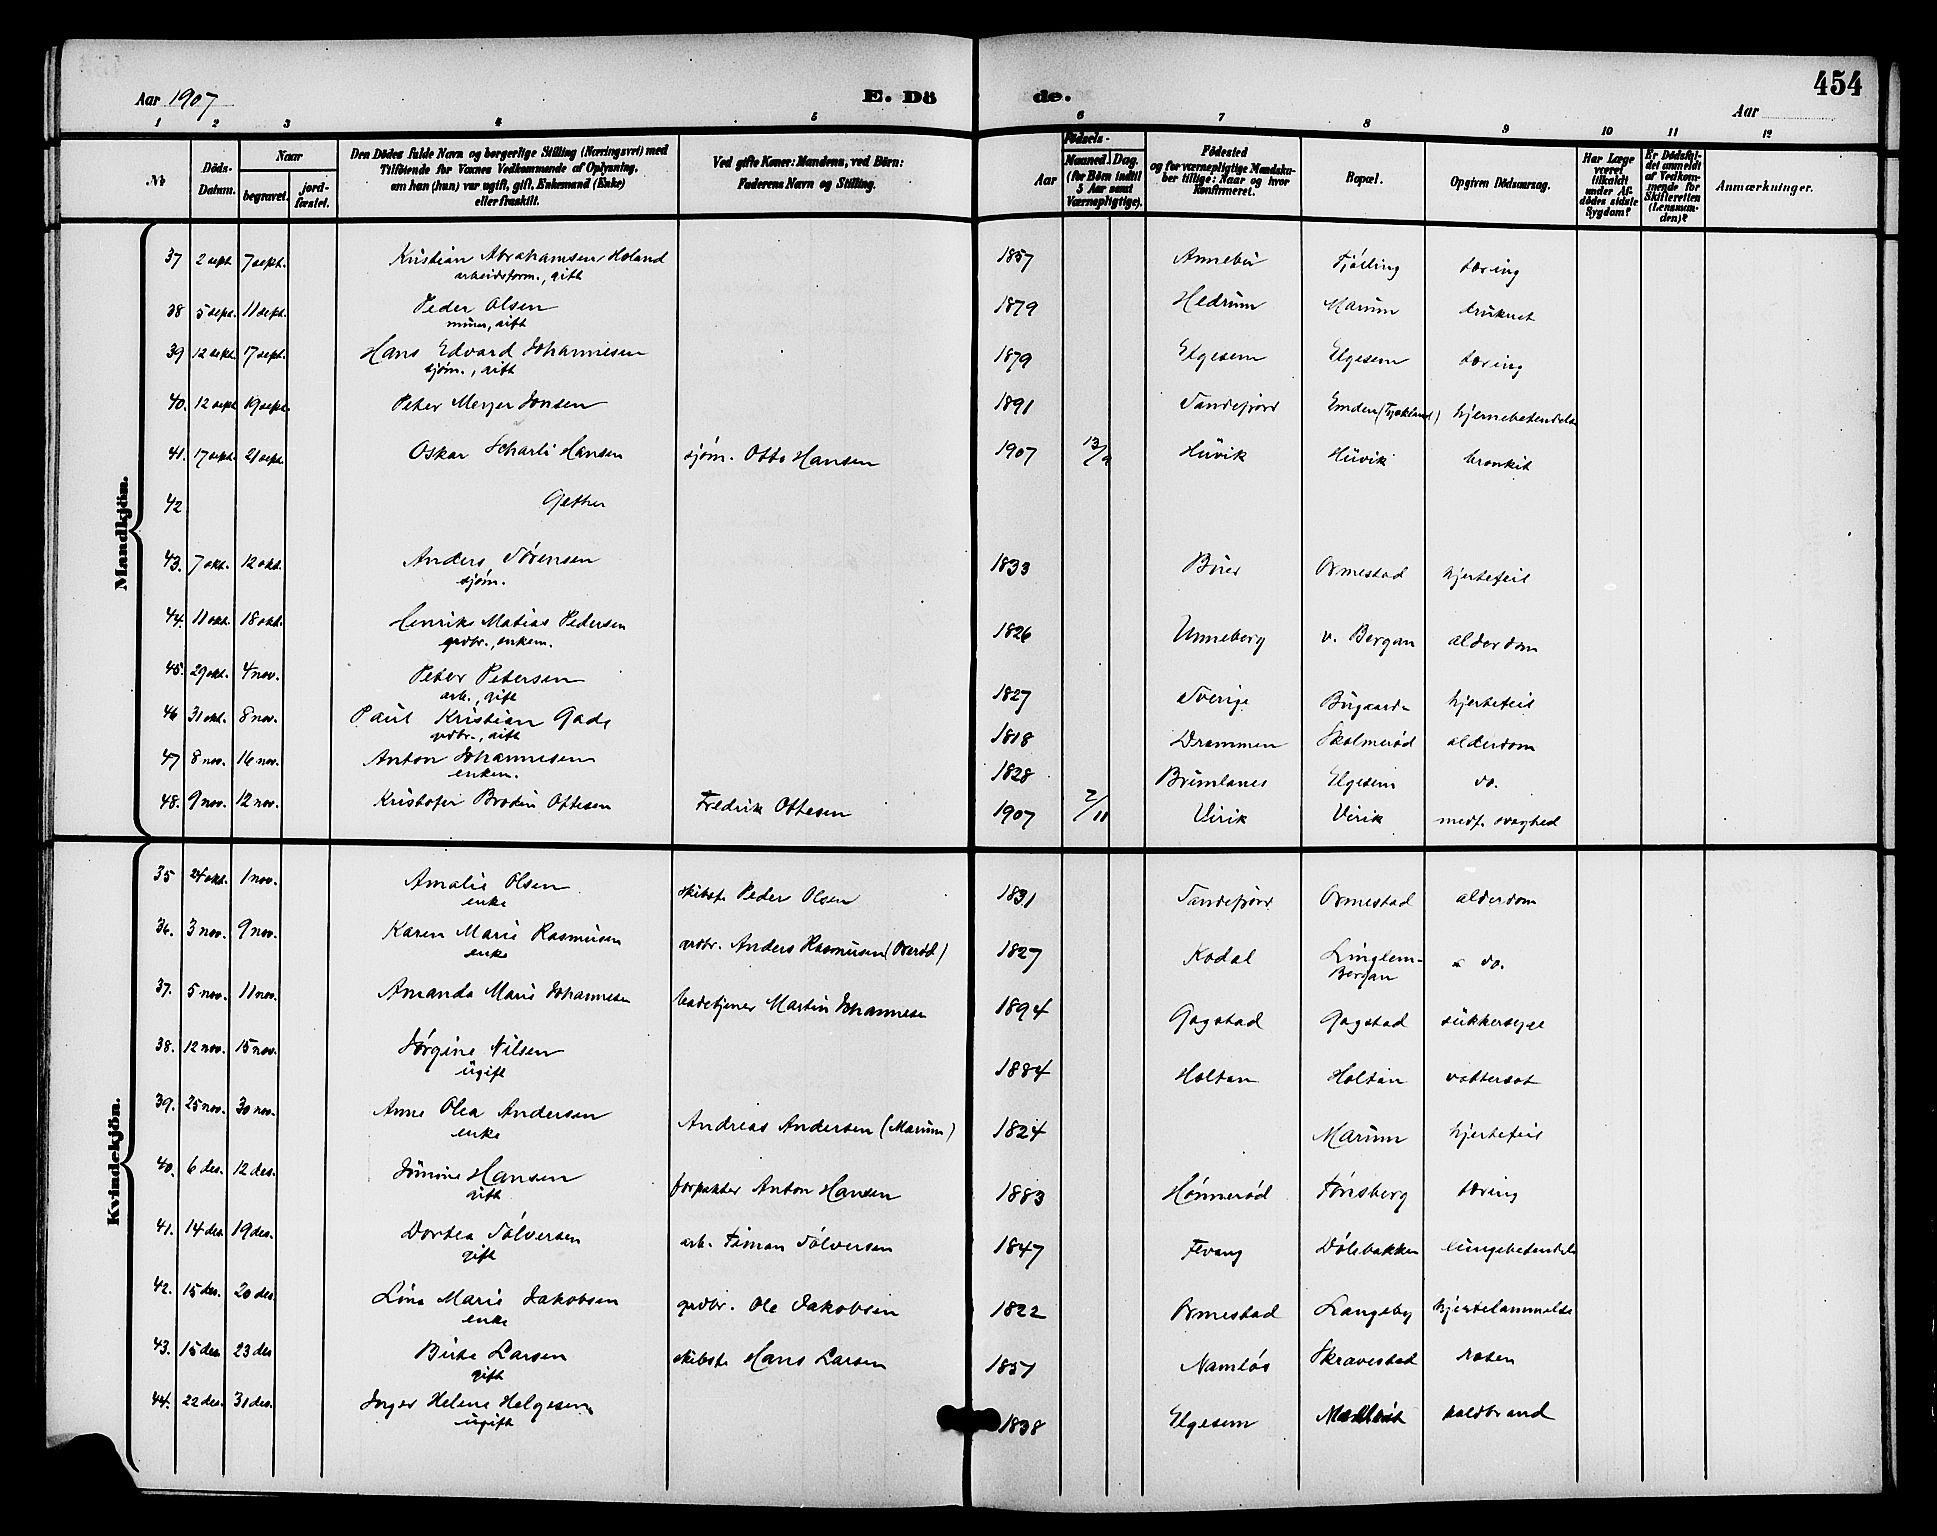 454
Aar 1907
E. Dö
de.
Aar
1 2 3 4 5 6 7 8 9 10 11 12
No
Döds-Datum.
Naar
begravet.
jord-fæstet.
Den Dödes fulde Navn og borgerlige Stilling (Næringsvei) med
Tilföiende for Voxnes Vedkommende af Oplysning,
om han (hun) var ugift, gift, Enkemand (Enke)
eller fraskilt.
Ved gifte Koner: Mandens, ved Börn:
Faderens Navn og Stilling.
Födsels-
Aar
Maaned. Dag.
(for Börn indtil
5 Aar samt
Værnepligtige).
Födested
og for værnepligtige Mandska-
ber tillige: Naar og hvor
Konfirmeret.
Bopæl.
Opgiven Dödsaarsag.
Har Læge
været
tilkaldt
under Af-
dödes sidste
Sygdom?
Er Dödsfal-
det anmeldt
af Vedkom-
mende for
Skifteretten
(Lensman-
den)?
Anmærkninger.
Mandkjön.
37 2 sept. 7 sept. Kristian Abrahamsen Holand 1857 Annebu Fjölling tæring
arbeidsform., gift
38 5 sept. 11 sept. Peder Olsen 1879 Hedrum Marum druknet
murer, gift
39 12 sept. 17 sept. Hans Edvard Johannesen 1879 Elgesem Elgesem tæring
sjøm., gift
40. 12 sept. 19 sept. Peter Meyer Jonsen 1891 Sandefjord Emden (Tyskland) hjernebetendelse
41. 17 sept. 21 sept. Oskar Scharli Hansen sjøm. Otto Hansen 1907 13/9 Huvik Huvik bronkit
42 Gether
43. 7 okt. 12 okt. Anders Sørensen 1833 Buer Ormestad hjertefeil
sjøm.
44. 11 okt. 18 okt. Henrik Matias Pedersen 1826 Unneberg v. Bergan alderdom
grdbr., enkem.
45. 29 okt. 4 nov. Peter Petersen 1827 Sverige Bugaard hjertefeil
arb., gift
46 31 okt. 8 nov. Paul Kristian Gade 1818 Drammen Skolmerød alderdom
grdbr., gift
47 8 nov. 16 nov. Anton Johannesen 1828 Brunlanes Elgesem do.
enkem.
48. 9 nov. 12 nov. Kristofer Brodin Ottesen Fredrik Ottesen 1907 2/11 Virik Virik medf. svaghed
Kvindekjön.
35 24 okt. 1 nov. Amalie Olsen skibstr Peder Olsen 1831 Sandefjord Ormestad alderdom
enke
36. 3 nov. 9 nov. Karen Marie Rasmusen grdbr. Anders Rasmusen (Overød) 1827 Kodal Linglem-Bergan do.
enke
37. 5 nov. 11 nov. Amanda Marie Johannesen badetjener Martin Johannesen 1894 Gogstad Gogstad sukkersyge
38. 12 nov. 15 nov. Jørgine Nilsen 1884 Holtan Holtan vattersot
ugift
39. 25 nov. 30 nov. Anne Olea Andersen Andreas Andersen (Marum) 1824 Marum hjertefeil
enke
40. 6 des. 12 des. Hansen forpakter Anton Hansen 1883 Hønnerød Tønsberg tæring
gift
41. 14 des. 19 des. Dortea Sølversen arb. Timan Sølversen 1847 Fevang Dølebakken lungebetendelse
gift
42. 15 des. 20 des. Line Marie Jakobsen grdbr. Ole Jakobsen 1822 Ormestad Langeby hjertelammelse
enke
43. 15 des. 23 des Birte Larsen skibstr Hans Larsen 1857 Namløs Skravestad rosen
gift
44. 22 des. 31 des. Inger Helene Helgesen 1838 Elgesem koldbrand
ugift